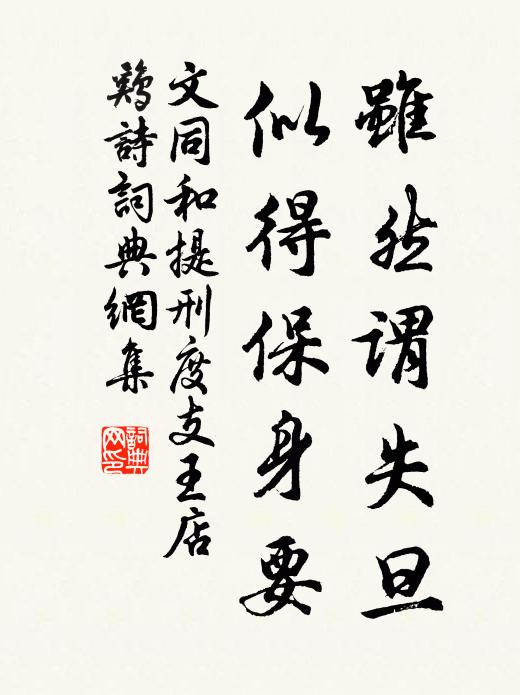 雖然謂失旦
似得保身要
文同和提刑度支王店
鷄詩詞典網集
詞典网印